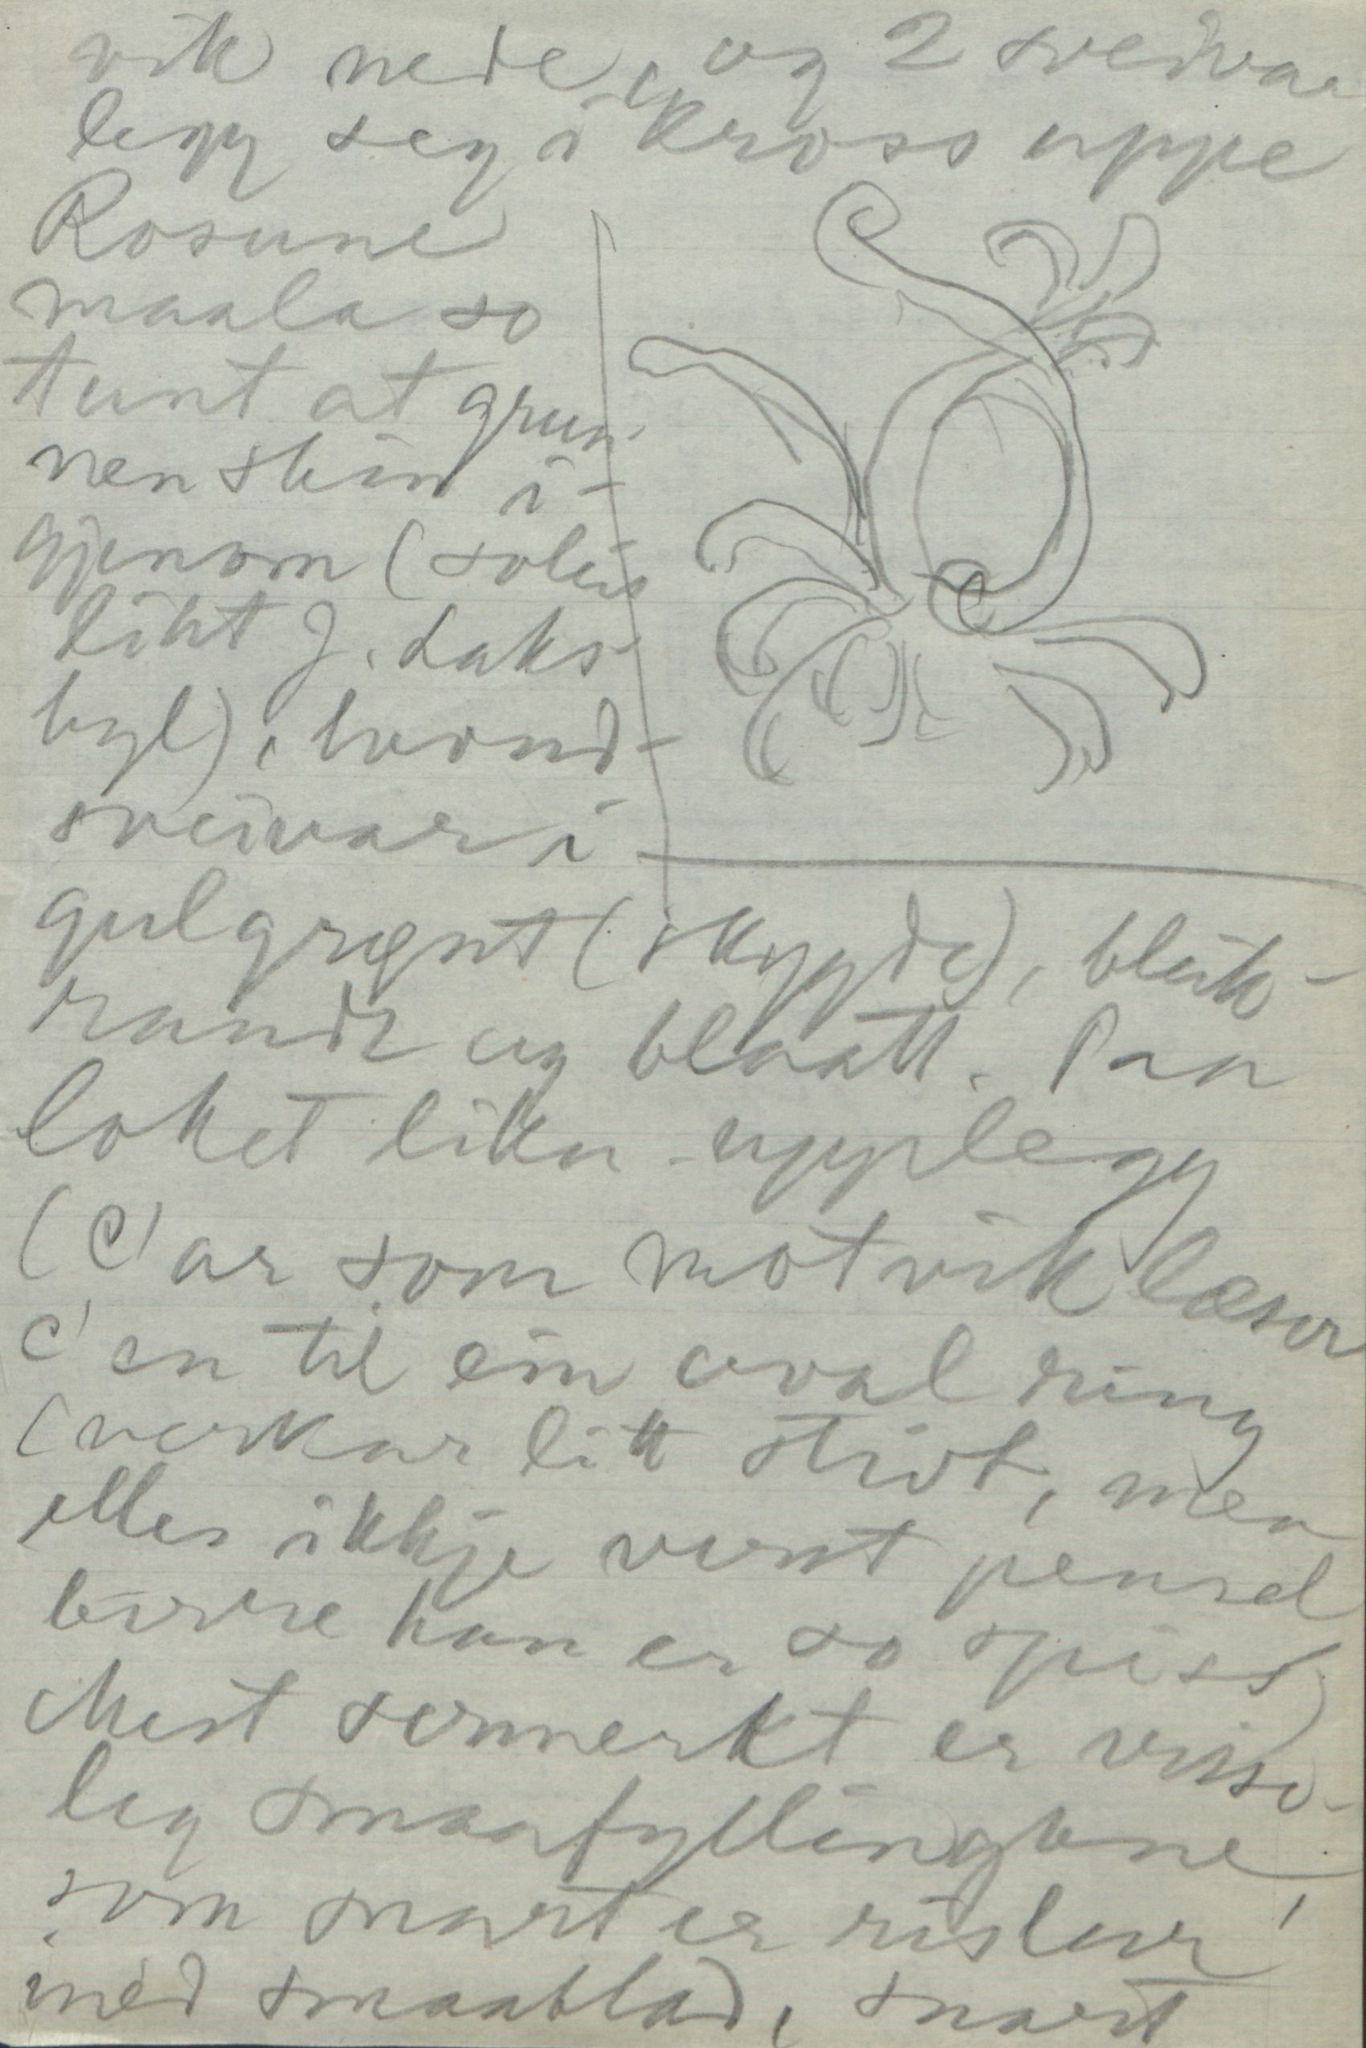 vik nede, og 2 sveivar
legg seg i kross uppe
Rosune
maala so
tunt at grun-
nen skin i-
gjenom (soleis
likt J. Laks-
hyl),
sveivar i
gulgrønt (skyggde), bleik-
rande og blaatt. Paa
loket lika upplegg
(C'ar som motvik læser
C'en til ein oval ring
(verkar litt stivt, men
elles ikkje verst pensel
berre han er so spiss)
Mest sermerkt er visse-
leg smaafyllingane
som snart er
med smaablad, snart